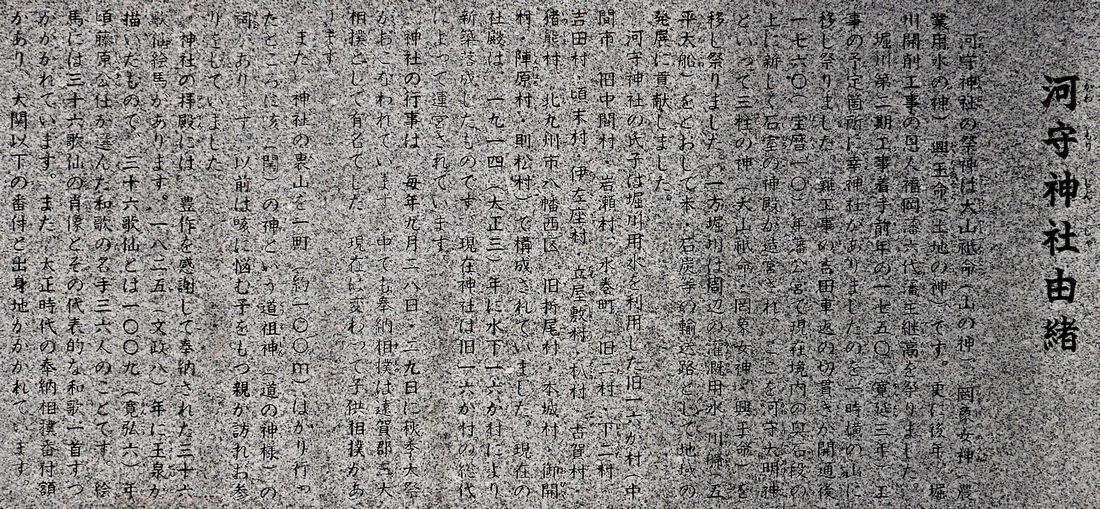 河守神社由緒
河守神社の祭神は大山祗命（山の神）、罔象女神（農
業用水の神）、興玉命（土地の神）です。更に後年、堀
川開削工事の恩人福岡藩六代藩主継高を祭りました。
堀川第二期工事着手前年の一七五〇（寛延三）年、工
事の予定箇所に幸神社がありましたのを一時横の山に
移し祭りました。難工事の吉田車返の切貫きが開通後
一七六〇（宝暦一〇）年藩公営で現在境内の奥石段の
上に新しく石室の神殿が造営され、ここを河守大明神
といって三柱の神（大山祗命・罔象女神・興玉命）を
移し祭りました。一方堀川は周辺の灌漑用水、川艜（五
平太船）をとおして米・石炭等の輸送路として地域の
発展に貢献しました。
河守神社の氏子は堀川用水を利用した旧一六か村（中
間市 旧中間村・岩瀬村、水巻町 旧二村・下二村・
吉田村・頃末村・伊左座村・立屋敷村・杁村・古賀村・
猪熊村、北九州市八幡西区 旧折尾村・本城村・御開
村・陣原村・則松村）で構成されていました。現在の
社殿は、一九一四（大正三）年に水下一六か村により
新築落成したものです。現在神社は旧一六か村の総代
によって運営されています。
神社の行事は、毎年九月二八日・二九日に秋季大祭
がおこなわれています。中でも奉納相撲は遠賀郡三大
相撲として有名でした。現在は変わって子供相撲があ
ります。
また、神社の裏山を一町（約一〇〇ｍ）ばかり行っ
たところに咳（関）の神という道祖神（道の神様）の
祠があります。以前は咳に悩む子をもつ親が訪れお参
りをしていました。
神社の拝殿には、豊作を感謝して奉納された三十六
歌仙絵馬があります。一八二五（文政八）年に玉泉が
描いたもので、三十六歌仙とは一〇〇九（寛弘六）年
頃藤原公任が選んだ和歌の名手三六人のことです。絵
馬には三十六歌仙の肖像とその代表的な和歌一首ずつ
がかかれています。また、大正時代の奉納相撲番付額
があり、大関以下の番付と出身地がかかれています。